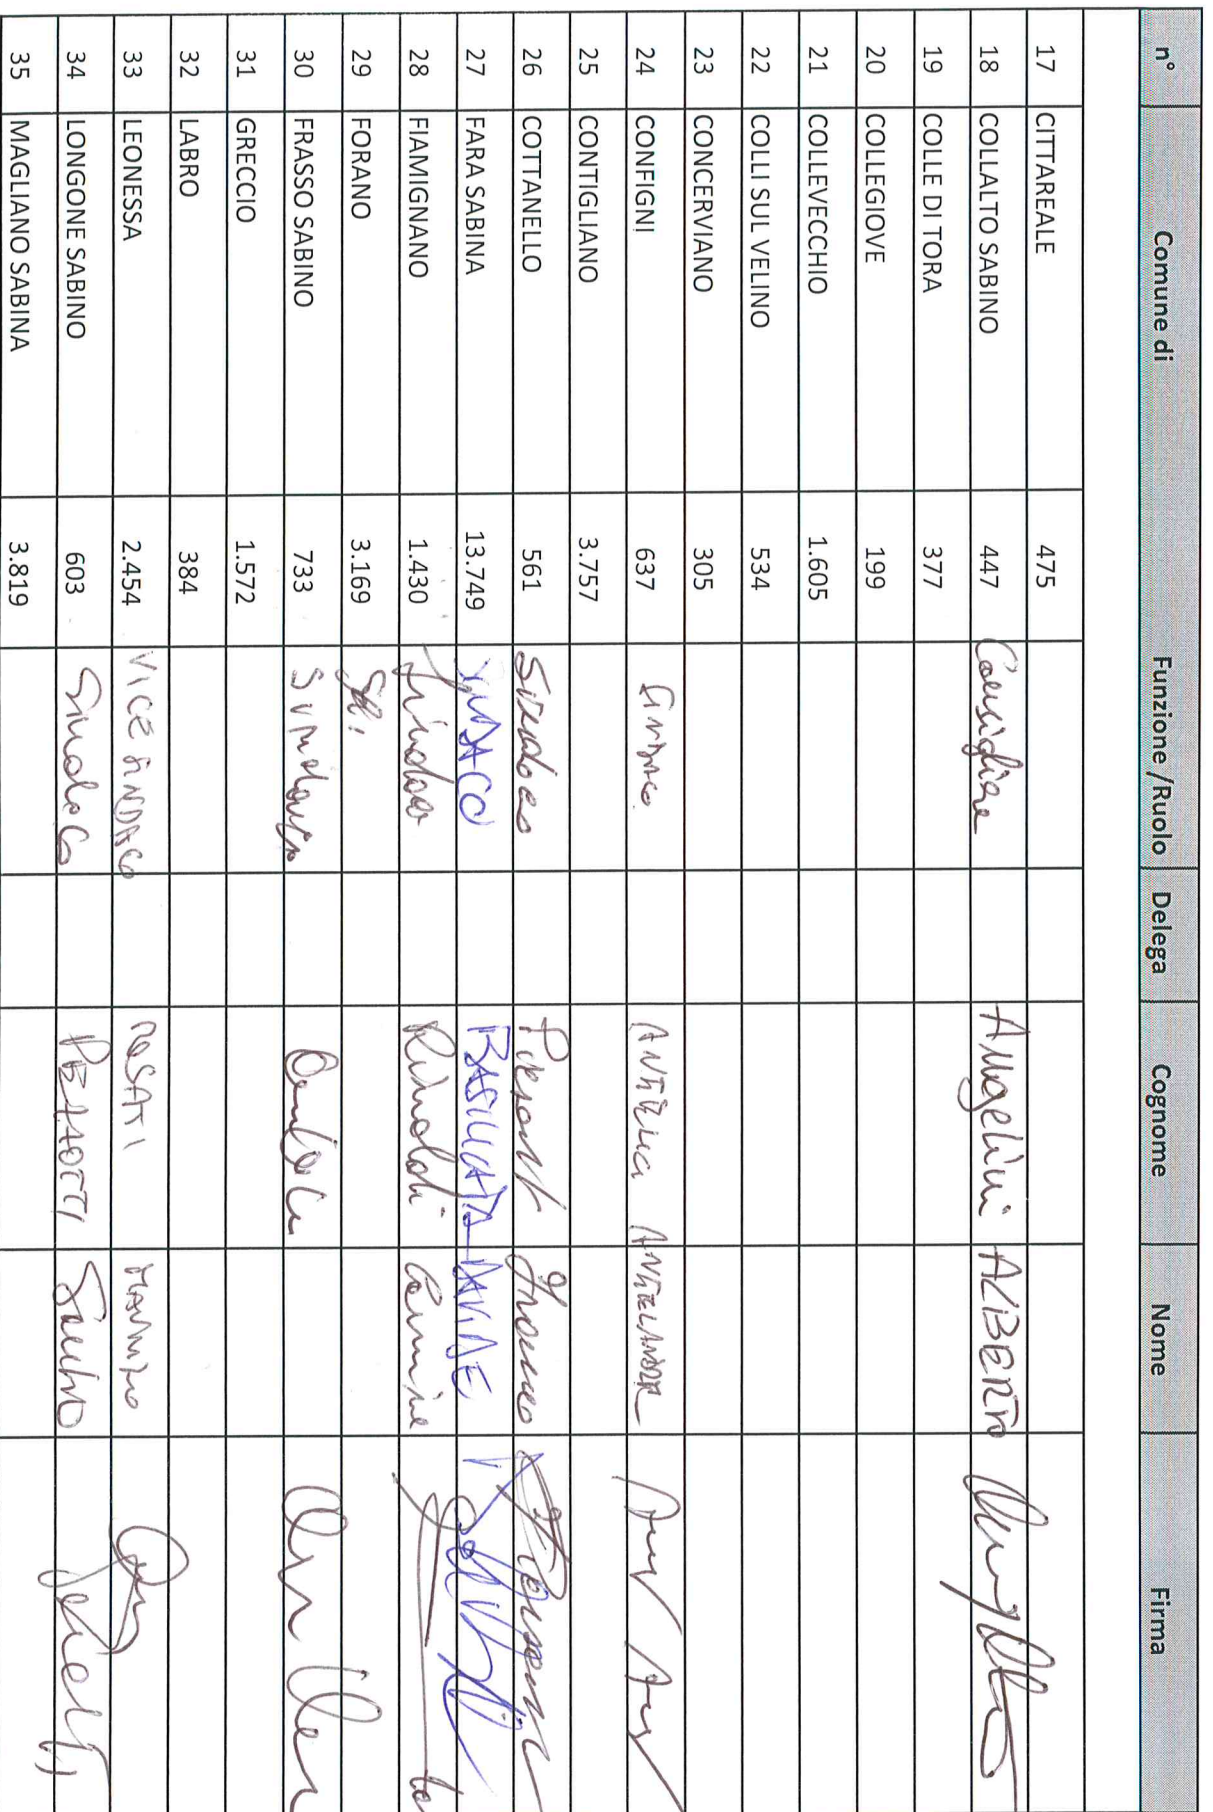 n° Comune di Funzione /Ruolo Delega Cognome Nome Firma
17 CITTAREALE 475
18 COLLALTO SABINO 447 Consigliere Angelini ALBERTO
19 COLLE DI TORA 377
20 COLLEGIOVE 199
21 COLLEVECCHIO 1.605
22 COLLI SUL VELINO 534
23 CONCERVIANO 305
24 CONFIGNI 637 SINDACO
25 CONTIGLIANO 3.757
26 COTTANELLO 561 Sindaco Piersanti Franco
27 FARA SABINA 13.749 SINDACO BASILICATA DAVIDE
28 FIAMIGNANO 1.430 Sindaco Rinaldi Carmine
29 FORANO 3.169
30 FRASSO SABINO 733 Sindaco
31 GRECCIO 1.572
32 LABRO 384
33 LEONESSA 2.454 VICE SINDACO ROSATI
34 LONGONE SABINO 603 Sindaco PEZZOTTI Santino
35 MAGLIANO SABINA 3.819